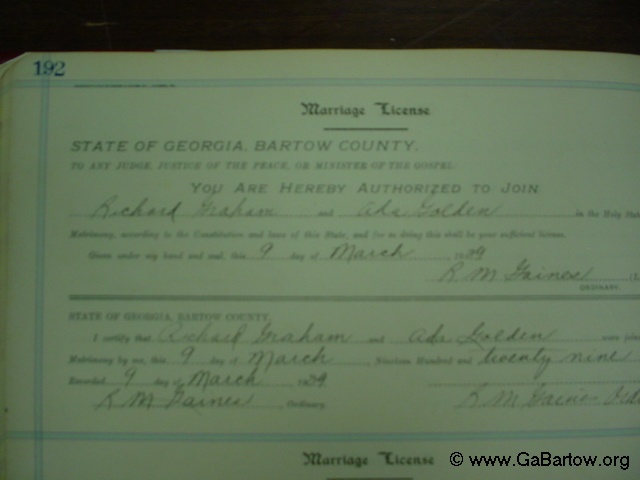 192
Marriage License
STATE OF GEORGIA, BARTOW COUNTY.
TO ANY JUDGE, JUSTICE OF THE PEACE, OR MINISTER OF THE GOSPEL:
YOU ARE HEREBY AUTHORIZED TO JOIN
Richard Graham and Ada Golden in the Holy State
Matrimony, according to the Constitution and laws of this State, and for so doing this shall be your sufficient license.
Given under my hand and seal, this 9 day of March 1929
R M Gaines (L
ORDINARY.
STATE OF GEORGIA, BARTOW COUNTY.
I certify that Richard Graham and Ada Golden were join
Matrimony by me, this 9 day of March Nineteen Hundred and twenty nine
Recorded 9 day of March 1929
R M Gaines Ordinary. R. M Gaines Ord
Marriage License
© www.GaBartow.org